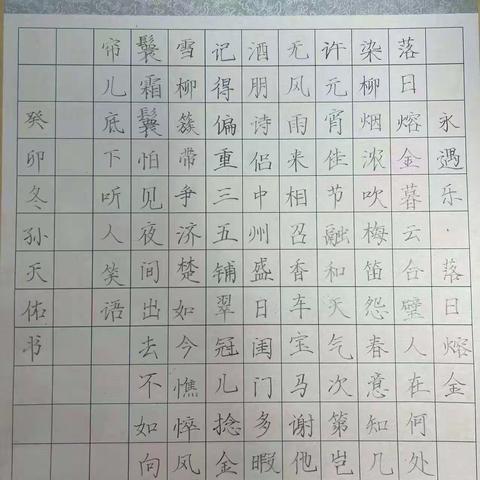 永遇乐·落日熔金
落日熔金暮云合璧人在何处
染柳烟浓吹梅笛怨春意知几
许元宵佳节融和天气次第岂
无风雨来相召香车宝马谢他
酒朋诗侣中州盛日闺门多暇
记得偏重三五铺翠冠儿捻金
雪柳簇带争济楚如今憔悴风
鬟霜鬟怕见夜间出去不如向
帘儿底下听人笑语
癸卯冬孙天佑书